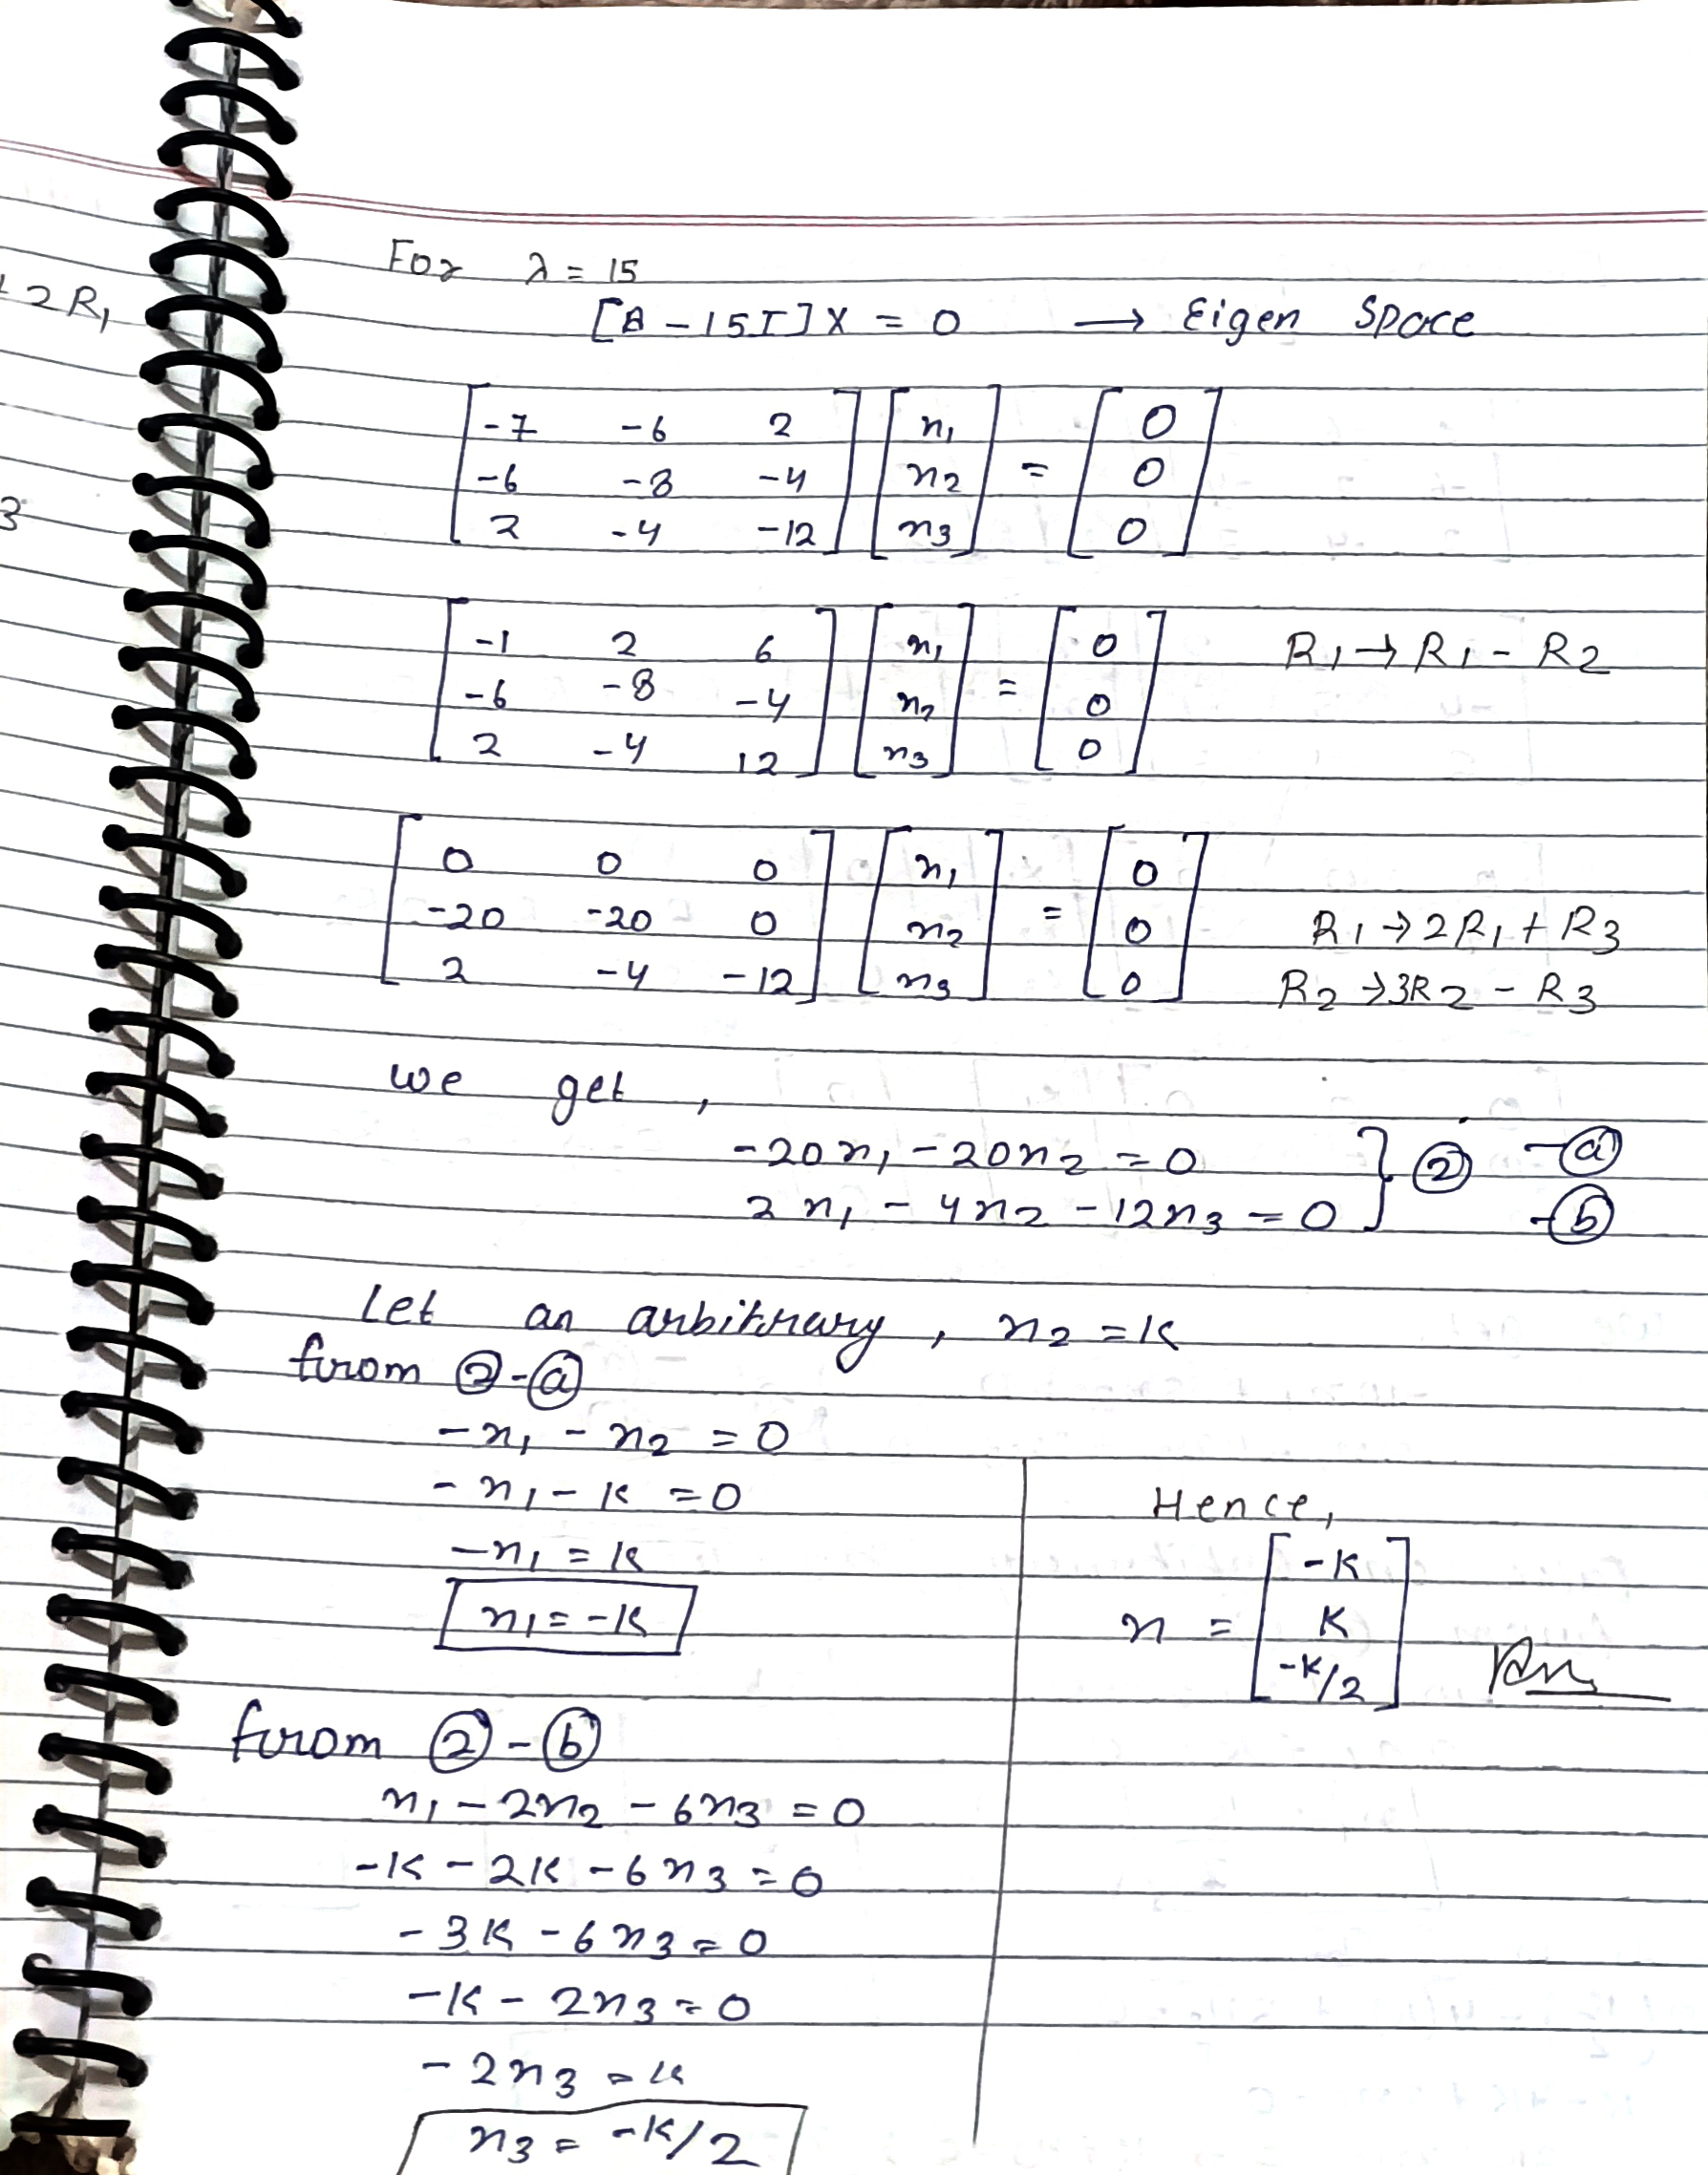 + 2R₁
3
For λ = 15
[A - 15I] X = 0 → Eigen Space
[-7 -6 2] [x₁] = [0]
[-6 -8 -4] [x₂] = [0]
[2 -4 -12] [x₃] = [0]
[-1 2 6] [x₁] = [0] R₁ → R₁ - R₂
[-6 -8 -4] [x₂] = [0]
[2 -4 12] [x₃] = [0]
[0 0 0] [x₁] = [0]
[-20 -20 0] [x₂] = [0] R₁ → 2R₁ + R₃
[2 -4 -12] [x₃] = [0] R₂ → 3R₂ - R₃
we get,
-20x₁ - 20x₂ = 0 } ② - ⓐ
2x₁ - 4x₂ - 12x₃ = 0 } - ⓑ
Let an arbitrary, x₂ = k
from ② - ⓐ
-x₁ - x₂ = 0
-x₁ - k = 0
-x₁ = k
x₁ = -k
Hence,
x = [-k]
[k]
[-k/2] Ans
from ② - ⓑ
x₁ - 2x₂ - 6x₃ = 0
-k - 2k - 6x₃ = 0
-3k - 6x₃ = 0
-k - 2x₃ = 0
-2x₃ = k
x₃ = -k/2